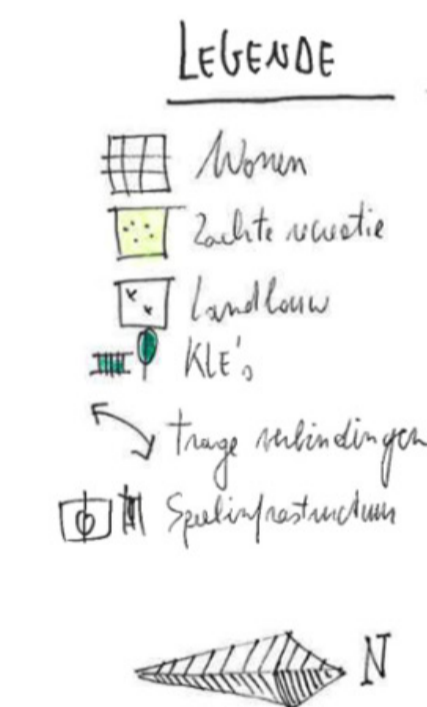 LEGENDE
Wonen
Zachte recreatie
Landbouw
KLE's
trage verbindingen
Speelinfrastructuur
N